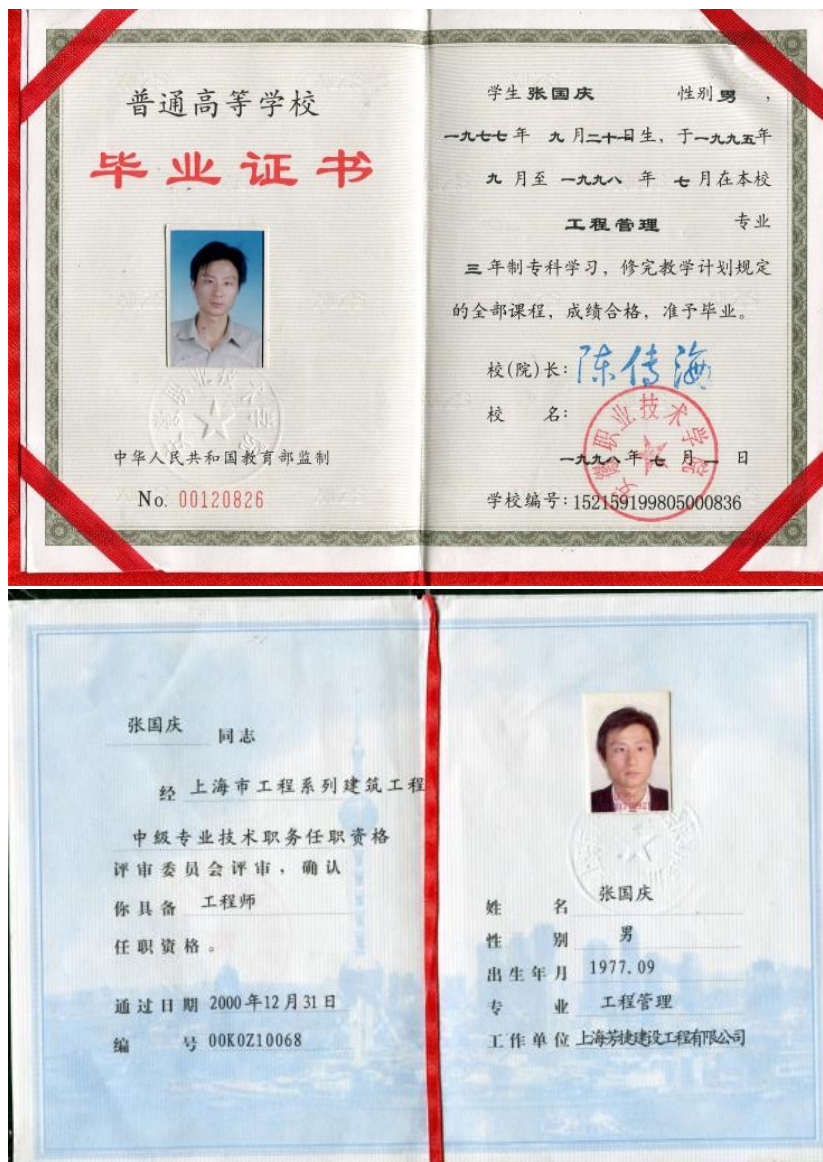 普通高等学校
毕业证书
中华人民共和国教育部监制
No. 00120826
学生 张国庆 性别 男 ，
一九七七年 九 月二十日生，于一九九五年
九 月至 一九九八 年 七 月在本校
工程管理 专业
三 年制专科学习，修完教学计划规定
的全部课程，成绩合格，准予毕业。
校(院)长：陈传海
校 名：
职业技术学院
一九九八 年 七 月 一 日
学校编号：152159199805000836
张国庆 同志
经 上海市工程系列建筑工程
中级专业技术职务任职资格
评审委员会评审，确认
你具备 工程师
任职资格。
通过日期 2000年12月31日
编 号 00K0Z10068
姓 名 张国庆
性 别 男
出生年月 1977.09
专 业 工程管理
工作单位 上海芳捷建设工程有限公司